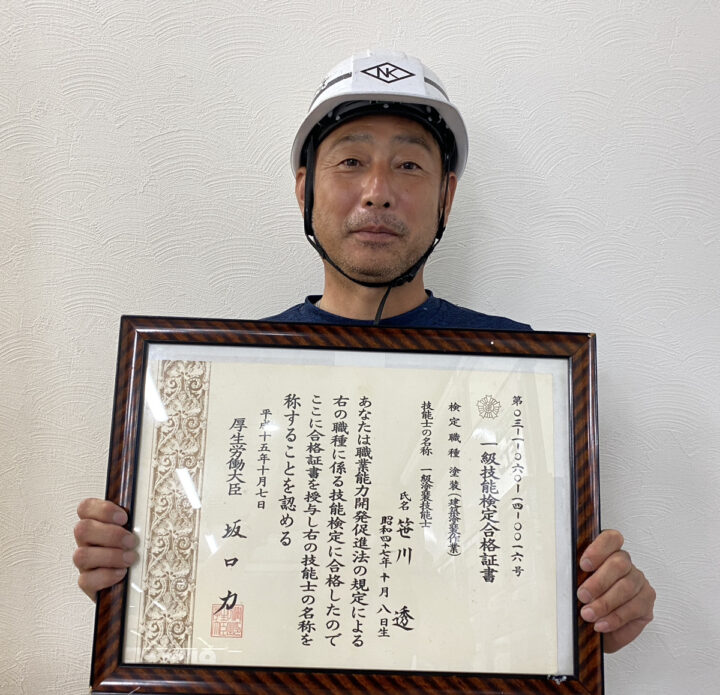 NK
第〇三－一－〇六〇－一四－〇〇一六号
一級技能検定合格証書
検定職種 塗装(建築塗装作業)
技能士の名称 一級塗装技能士
氏名 笹川 透
昭和四十七年十月八日生
あなたは職業能力開発促進法の規定による
右の職種に係る技能検定に合格したので
ここに合格証書を授与し右の技能士の名称を
称することを認める
平成十五年十月七日
厚生労働大臣 坂口力